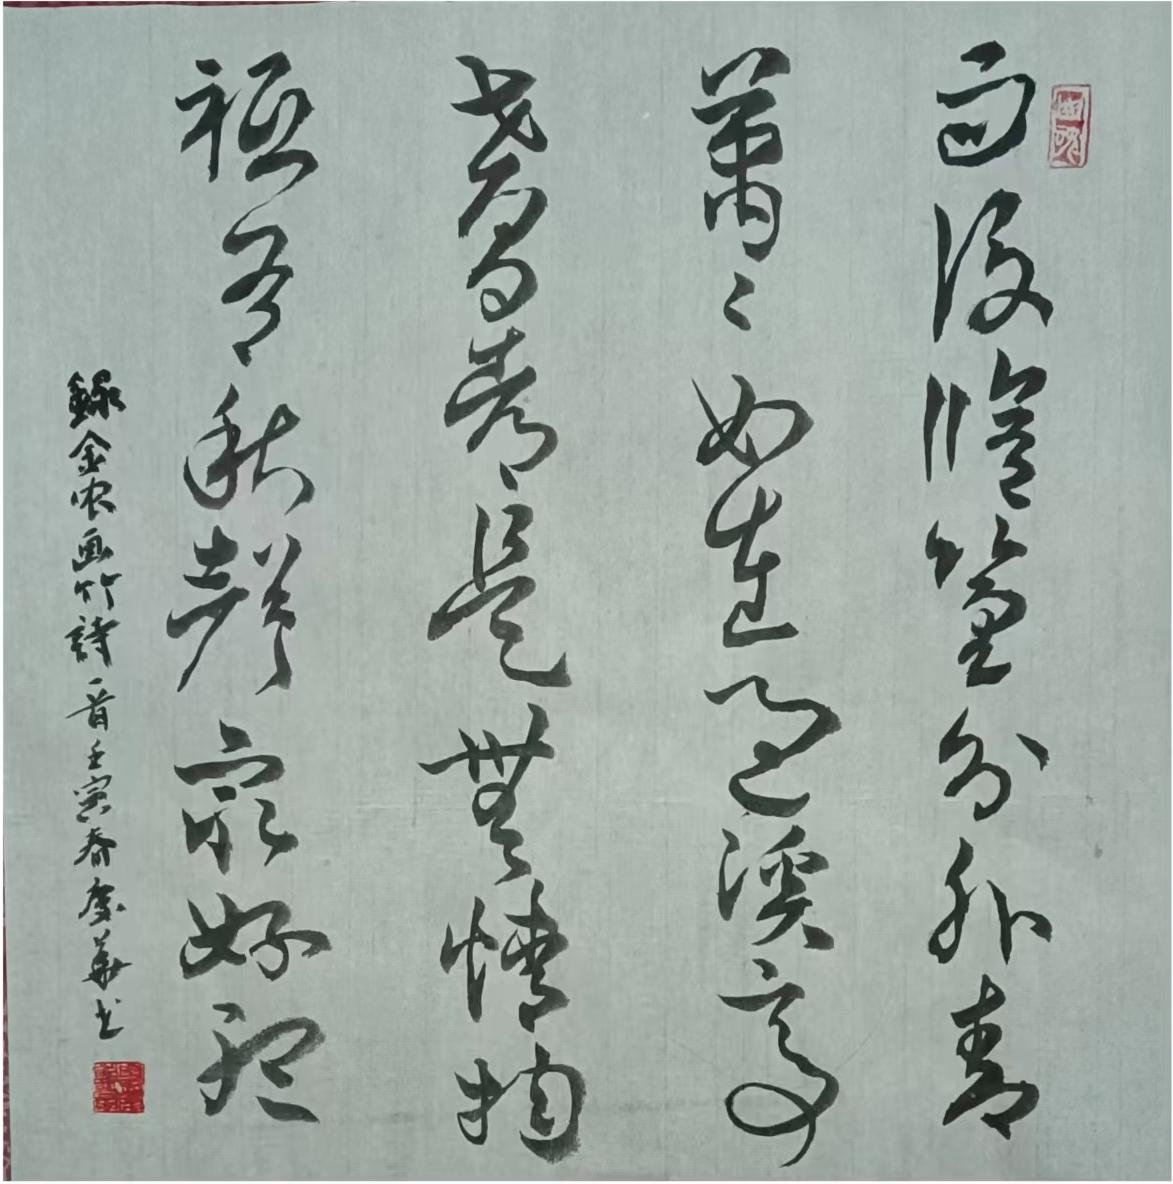 雨後脩篁分外青
蕭々如在過溪亭
世間都是無情物
祗有秋聲最好聽
錄金农画竹詩一首壬寅春慶華书